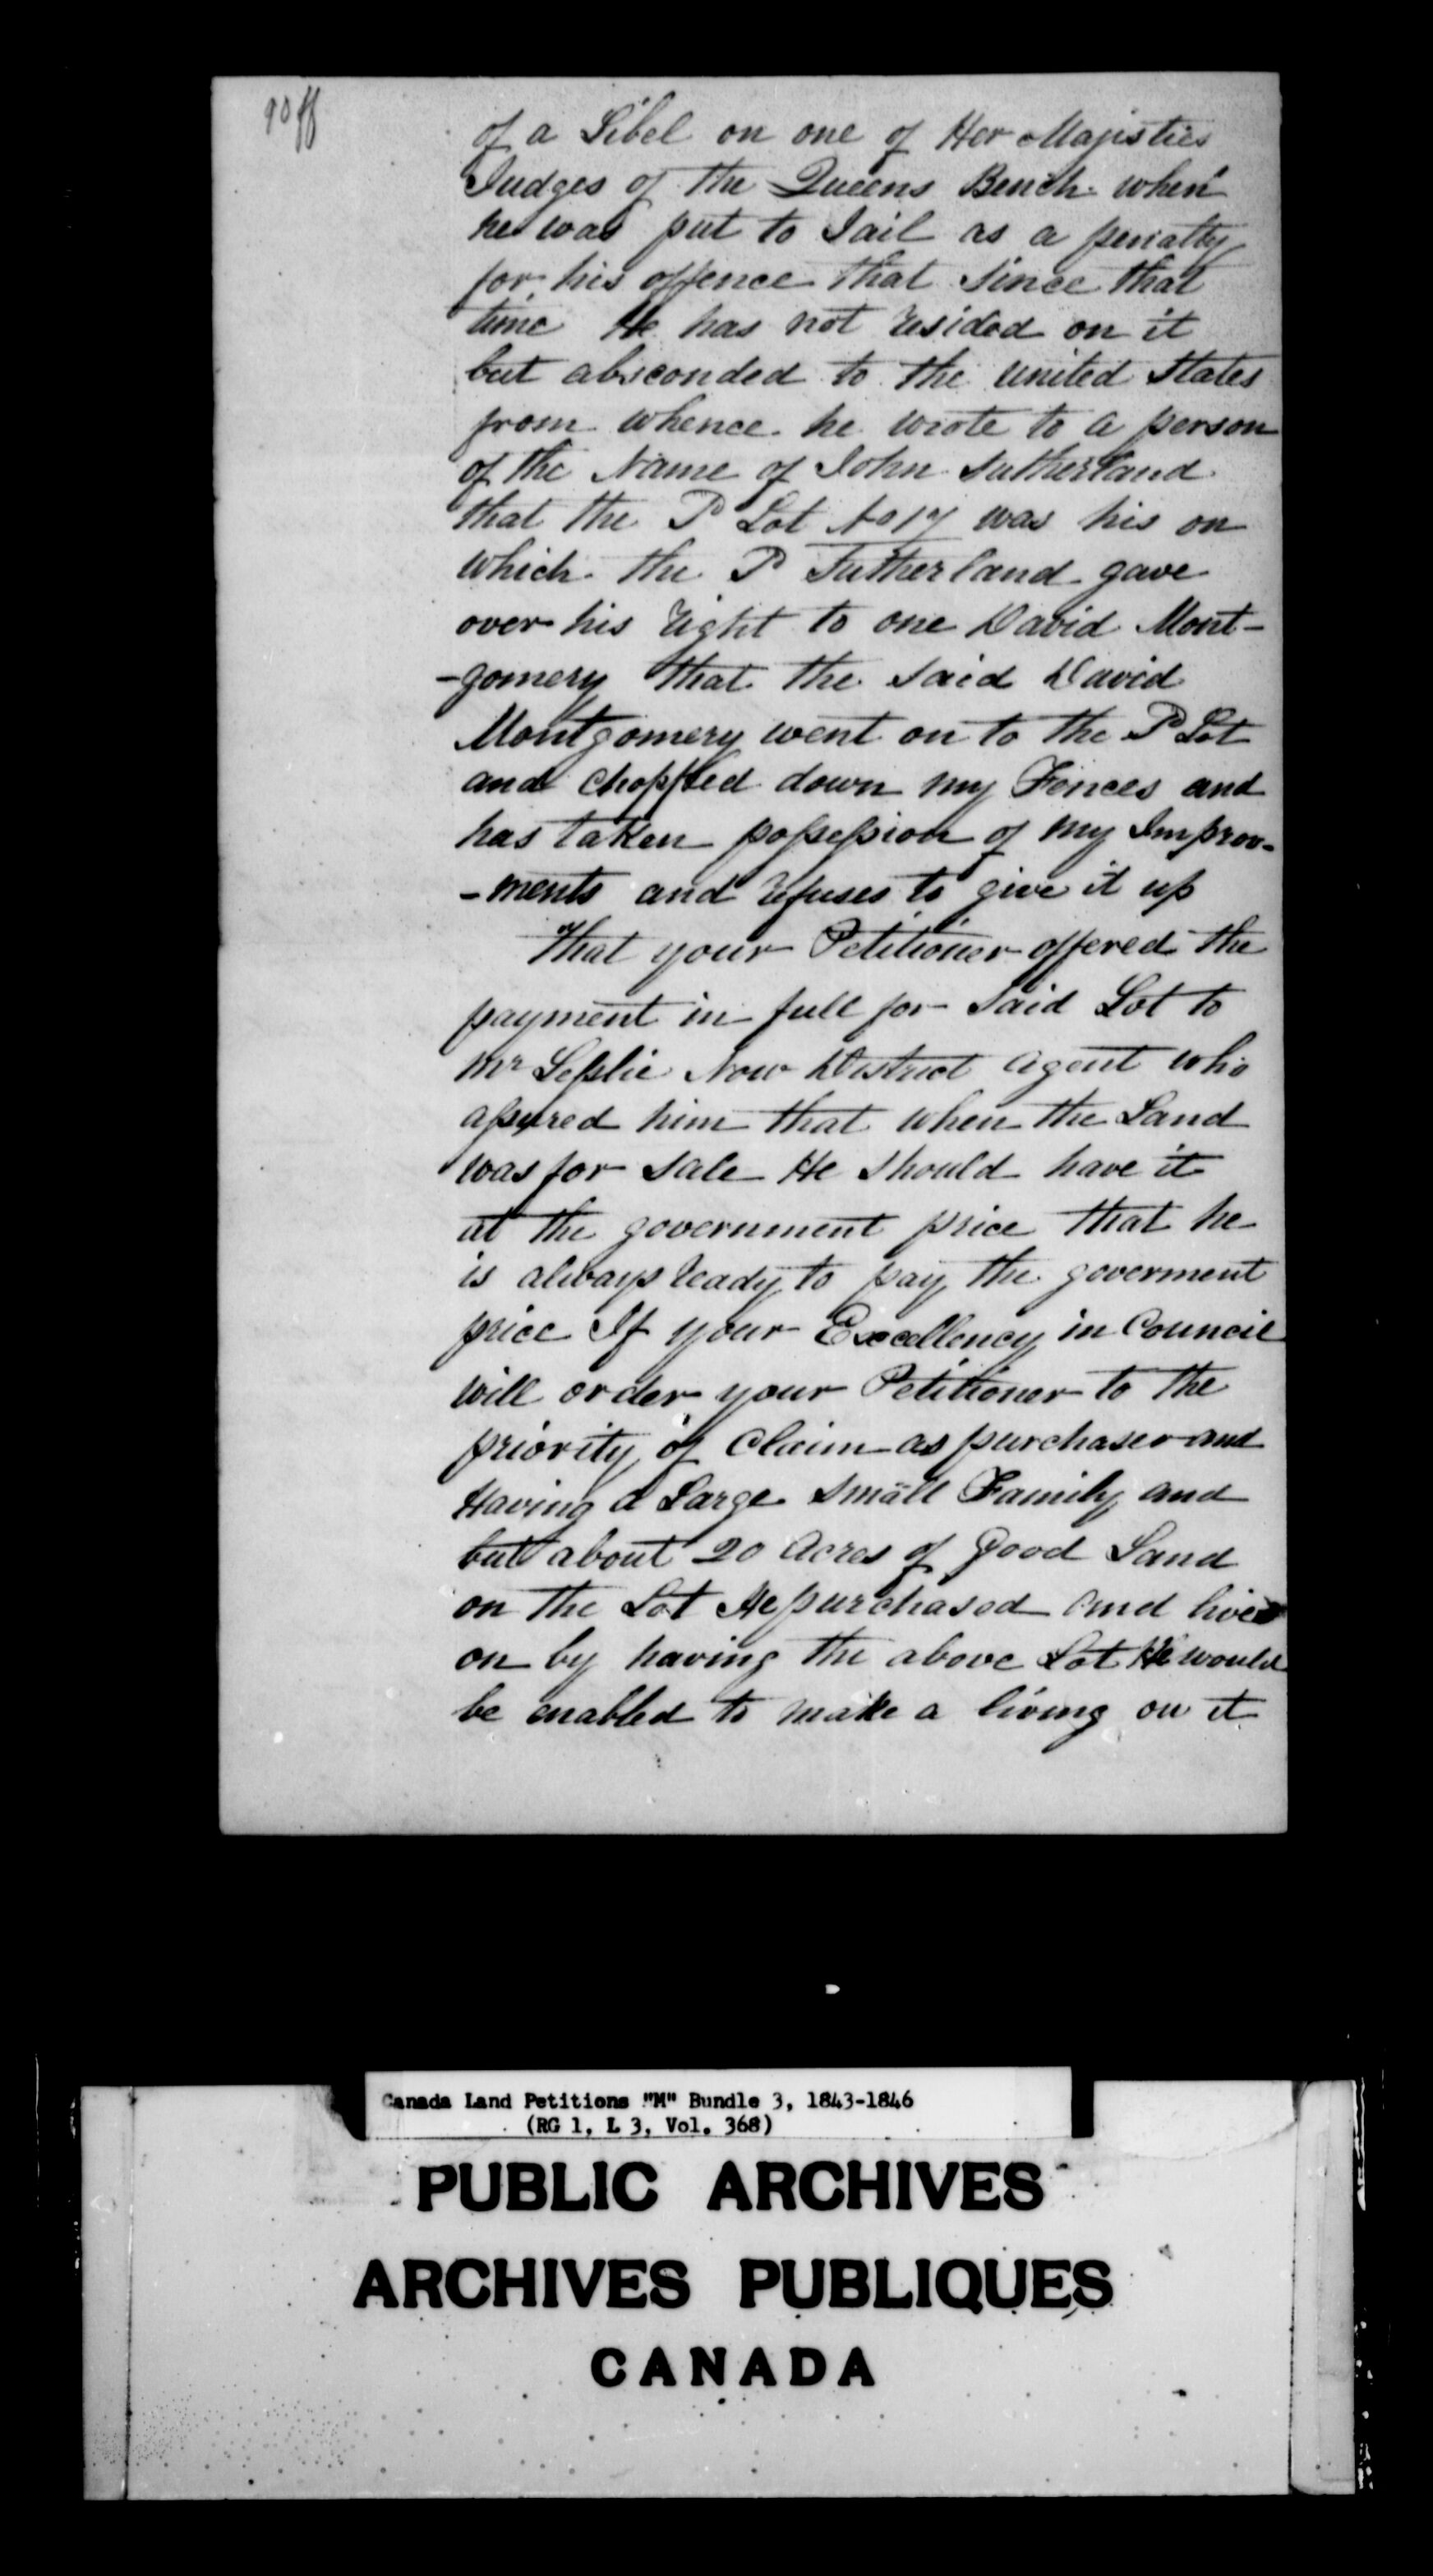 90ff
of a Libel on one of Her Majisties
Judges of the Queens Bench when
he was put to Jail as a penalty
for his offence that since that
time He has not resided on it
but absconded to the united States
from whence he wrote to a person
of the Name of John Sutherland
that the P Lot No 17 was his on
which the P Sutherland gave
over his right to one David Mont-
-gomery that the said David
Montgomery went on to the P Lot
and chopped down my Fences and
has taken possession of my Improv-
-ments and refuses to give it up
That your Petitioner offered the
payment in full for said Lot to
Mr Leslie Now District Agent who
assured him that when the Land
was for sale He should have it
at the government price that he
is always ready to pay the goverment
price If your Excellency in Council
will order your Petitioner to the
priority of Claim as purchaser and
Having a Large small Family and
but about 20 Acres of Good Land
on the Lot He purchased and lives
on by having the above Lot He would
be enabled to make a living on it
Canada Land Petitions "M" Bundle 3, 1843-1846
(RG 1, L 3, Vol. 368)
PUBLIC ARCHIVES
ARCHIVES PUBLIQUES
CANADA